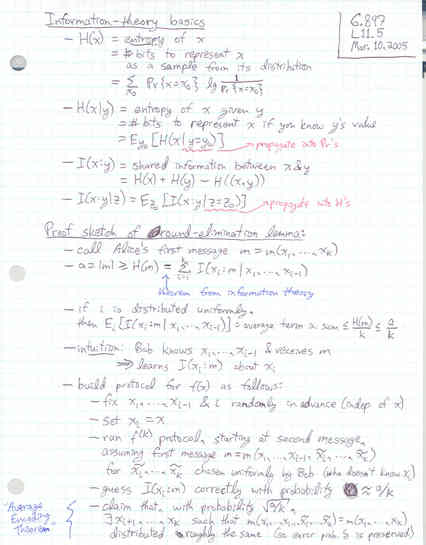 6.897
L11.5
Mar. 10, 2005
Information-theory basics
- H(x) = entropy of x
= # bits to represent x
as a sample from its distribution
= Σ_{x₀} Pr{x=x₀} lg 1/Pr{x=x₀}
- H(x|y) = entropy of x given y
= # bits to represent x if you know y's value
= E_{y₀}[H(x|y=y₀)] → propagate into Pr's
- I(x:y) = shared information between x & y
= H(x) + H(y) - H((x,y))
- I(x:y|z) = E_{z₀}[I(x:y|z=z₀)] → propagate into H's
Proof sketch of round-elimination lemma:
- call Alice's first message m = m(x₁, ..., x_k)
- a = |m| ≥ H(m) = Σ_{i=1}^{k} I(x_i : m | x₁, ..., x_{i-1})
theorem from information theory
- if i is distributed uniformly,
then E_i[I(x_i : m | x₁, ..., x_{i-1})] = average term in sum ≤ H(m)/k ≤ a/k
- intuition: Bob knows x₁, ..., x_{i-1} & receives m
⇒ learns I(x_i : m) about x_i
- build protocol for f(x) as follows:
- fix x₁, ..., x_{i-1} & i randomly in advance (indep. of x)
- set x_i = x
- run f^(k) protocol, starting at second message,
assuming first message m = m(x₁, ..., x_{i-1}, x̃_i, ..., x̃_k)
for x̃_i, ..., x̃_k chosen uniformly by Bob (who doesn't know x_i)
- guess I(x_i : m) correctly with probability ≈ a/k
"Average Encoding Theorem"
- claim that, with probability √a/k,
∃ x_{i+1}, ..., x_k such that m(x₁, ..., x̃_i, ..., x̃_k) = m(x₁, ..., x_k)
distributed roughly the same (so error prob. δ is preserved)